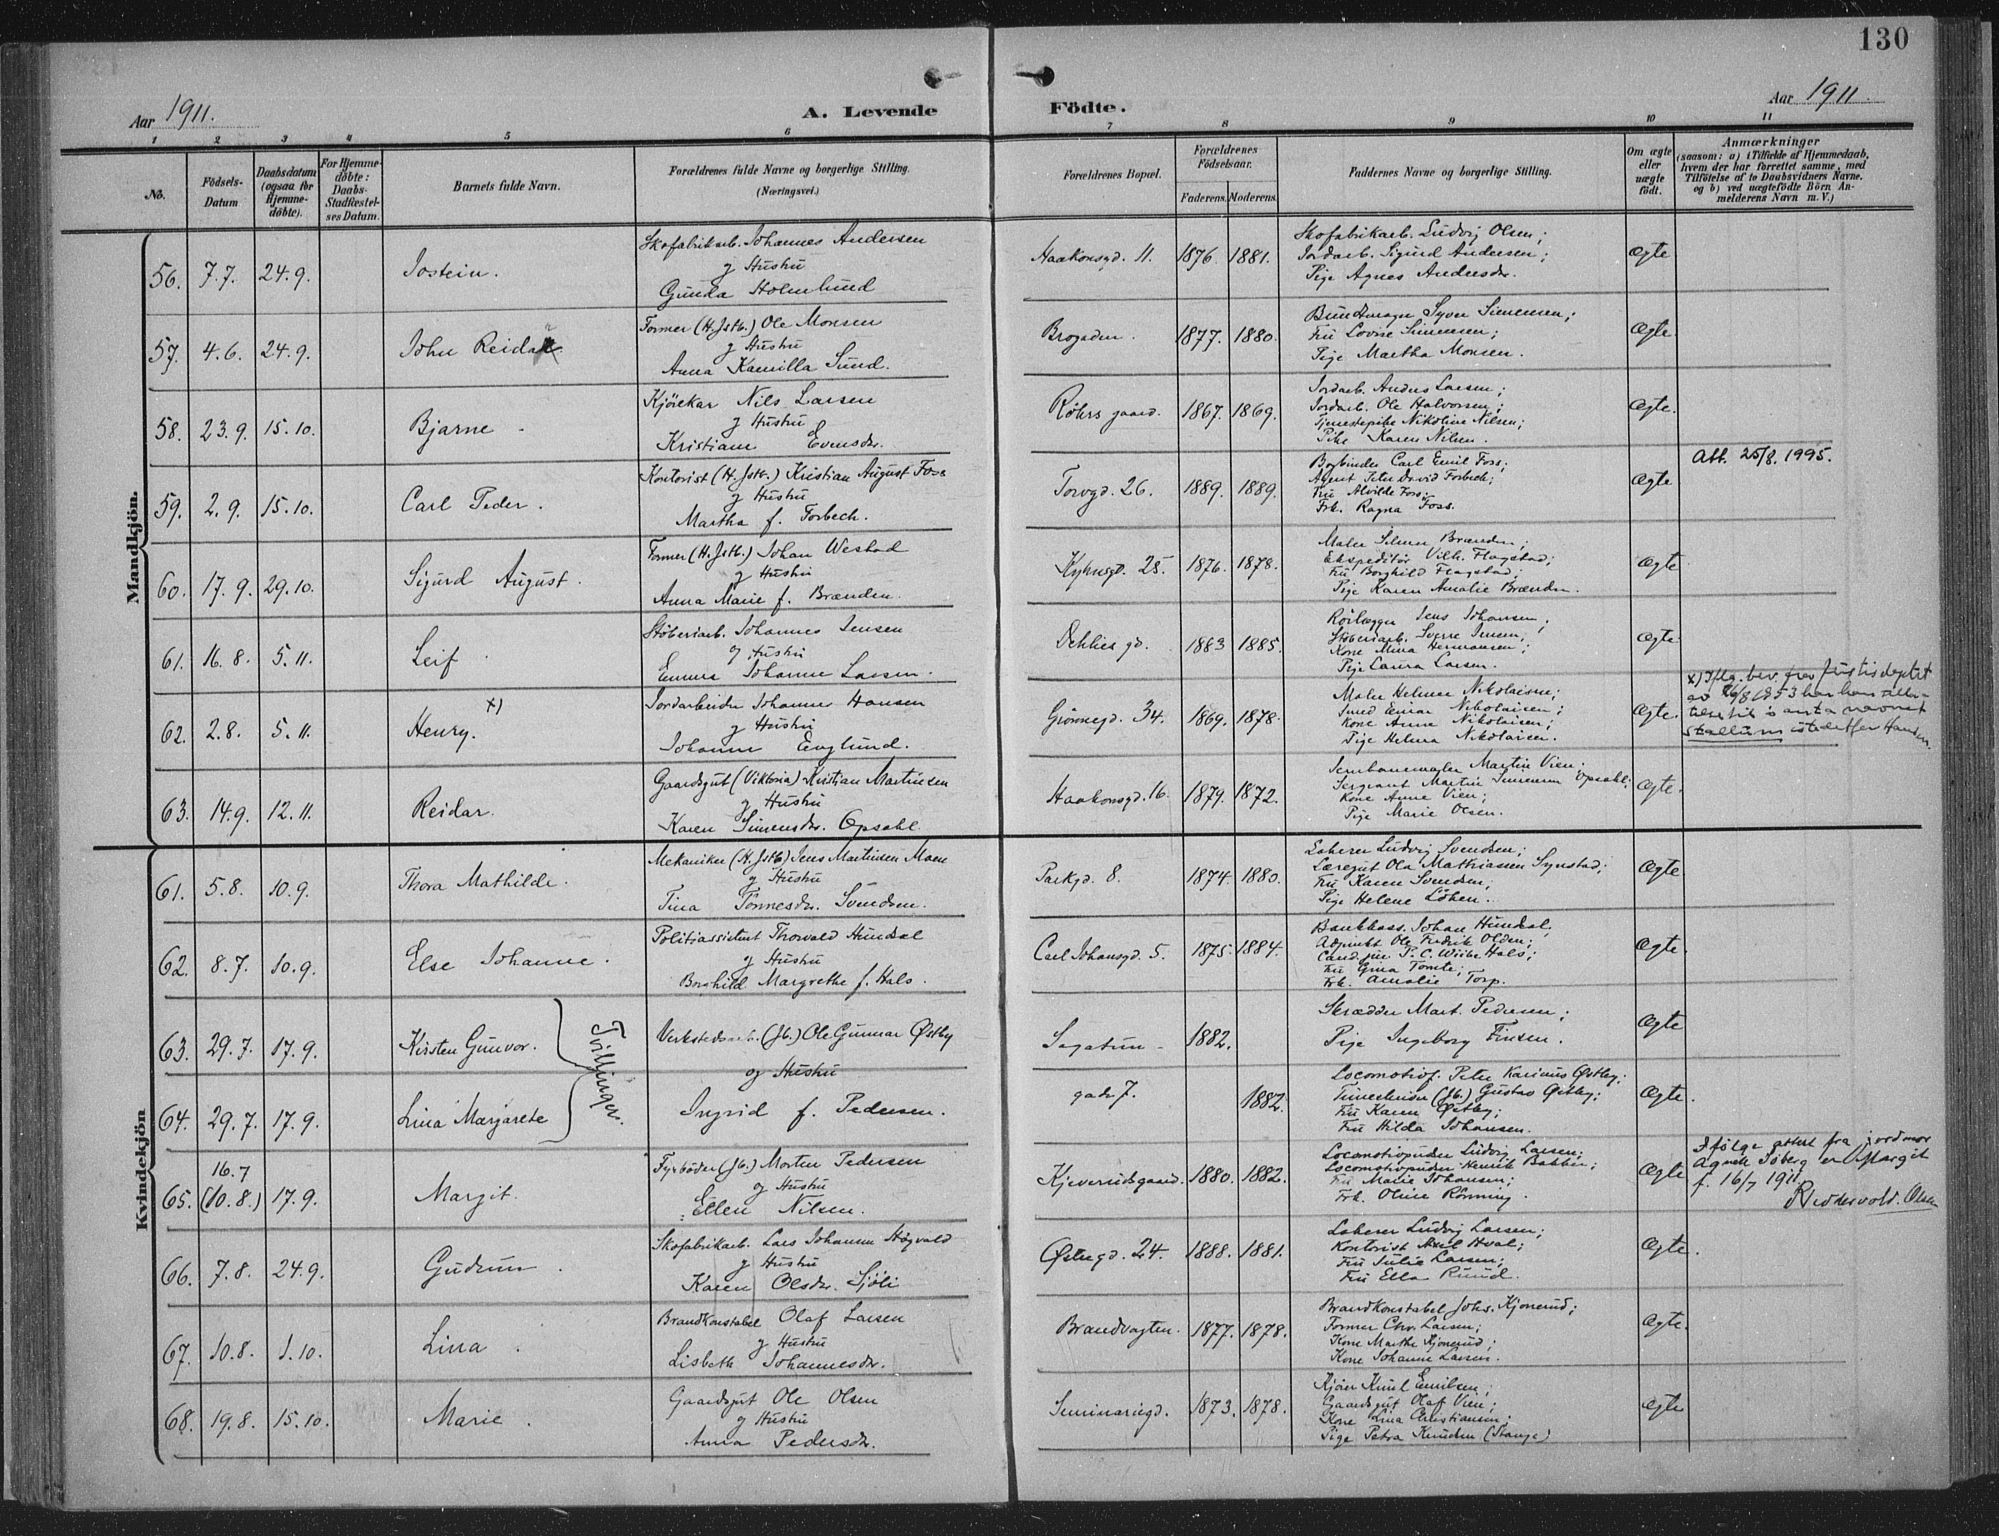 130
Aar 1911.
A. Levende Födte.
Aar 1911.
1 2 3 4 5 6 7 8 9 10 11
No.
Födsels-Datum
Daabsdatum (ogsaa for Hjemme-döbte).
For Hjemme-döbte: Daabs-Stadfæstel-ses Datum.
Barnets fulde Navn.
Forældrenes fulde Navne og borgerlige Stilling.
(Næringsvei.)
Forældrenes Bopæl.
Forældrenes Födselsaar.
Faderens. Moderens.
Faddernes Navne og borgerlige Stilling.
Om ægte eller uægte födt.
Anmærkninger
(saasom: a) i Tilfælde af Hjemmedaab, hvem der har forrettet samme, med Tilföielse af to Daabsvidners Navne. og b) ved uægtefödte Börn An-melderens Navn m. V.)
Mandkjön.
56. 7.7. 24.9. Jostein.
Skofabrikarb. Johannes Andersen
og Hustru
Gunda Holmlund
Haakonsgd. 11. 1876. 1881.
Skofabrikarb. Ludvig Olsen;
Jordarb. Sigurd Andersen;
Pige Agnes Andersdr.
Ægte
57. 4.6. 24.9. John Reidar
Former (H. Jstb.) Ole Monsen
og Hustru
Anna Kamilla Sund.
Brogaden. 1877. 1880.
Syver Simensen;
Fru Lovise Simensen;
Pige Martha Monsen.
Ægte
58. 23.9. 15.10. Bjarne
Kjörekar Nils Larsen
og Hustru
Kristiane Evensdr.
Röhrs gaard. 1867. 1869.
Jordarb. Anders Larsen;
Jordarb. Ole Halvorsen;
Tjenestepike Nikoline Nilsen;
Pike Karen Nilsen.
Ægte.
59. 2.9. 15.10. Carl Peder.
Kontorist (H. Jstb.) Kristian August Foss
og Hustru
Martha f. Forbech.
Torvgd. 26. 1889. 1889.
Bogbinder Carl Emil Foss;
Agent Peter David Forbech;
Fru Alvilde Foss;
Frk. Ragna Foss.
Ægte
Att. 25/8. 1995.
60. 17.9. 29.10. Sigurd August.
Former (H. Jstb.) Johan Westad
og Hustru
Anna Marie f. Brænden.
25. 1876. 1878.
Maler Brænden;
Ekspeditör Vilh. Flagstad;
Fru Borghild Flagstad;
Pige Karen Amalie Brænden.
Ægte
61. 16.8. 5.11. Leif.
Stöberiarb. Johannes Jensen
og Hustru
Emma Johanne Larsen.
Dehlies gd. 1863 1885.
Rörlægger Jens Johansen;
Stöberiarb. Sverre Jensen;
Kone Mina Hermansen;
Pige Laura Larsen.
Ægte
62. 2.8. 5.11. Henry. x)
Jordarbeider Johannes Hansen
og Hustru
Johanne Englund.
Grönnegd. 34. 1869. 1878.
Maler Helmer Nikolaisen;
Smed Einar Nikolaisen;
Kone Anne Nikolaisen;
Pige Helma Nikolaisen.
Ægte.
x) Iflg. bev. fra Justisdeptet
av 26/8 1953 har han tilla-
telse til å anta navnet
Skallum istedetfor Hansen.
63. 14.9. 12.11. Reidar.
Gaardsgut (Viktoria) Kristian Martinsen
og Hustru
Karen Simensdr. Opsahl
Haakonsgd. 16. 1879. 1872.
Martin Vien;
Sergeant Martin Simensen Opsahl;
Kone Anne Vien;
Pige Marie Olsen.
Ægte.
Kvindekjön
61. 5.8. 10.9. Thora Mathilde.
Mekaniker (H. Jstb.) Jens Martinsen Moen
og Hustru
Tina Tönnesdr. Svendsen.
Parkgd. 8. 1874. 1880.
Loherer Ludvig Svendsen;
Læregut Ola Mathiassen Synstad;
Fru Karen Svendsen;
Pige Helene Löken.
Ægte
62. 8.7. 10.9. Else Johanne.
Politiassistent Thorvald Hundal
og Hustru
Borghild Margrethe f. Hals.
Carl Johansgd. 5. 1875. 1884.
Bankkass. Johan Hundal,
Adjunkt Ole Fredrik Olden;
Cand. jur. P. C. Wiibe Hals;
Fru Gina Tomte;
Frk. Amalie Torp.
Ægte
63. 29.7. 17.9. Kirsten Gunvor.
Tvillinger.
Verkstedsarb. (Jb.) Ole Gunnar Østby
og Hustru
Sagatun- 1882.
Skrædder Mart. Pedersen;
Pige Ingeborg Finsen.
Ægte
64. 29.7. 17.9. Lina Margarete
Ingrid f. Pedersen.
gade 7. 1882.
Locomotivf. Peter Karinus Østby;
Tømmerm (Jb.) Gustav Østby;
Fru Karen Østby;
Fru Hilda Johansen.
Ægte.
65. 16.7 (10.8.) 17.9. Margit.
Fyrböder (Jb.) Morten Pedersen
og Hustru
Ellen Nilsen.
Kjeverudsgaard. 1880. 1882.
Locomotivpudser Ludvig Larsen;
Locomotivpudser Henrik Bakken;
Fru Marie Johansen;
Frk. Oline Rönning.
Ægte
Ifølge attest fra jordmor
Agnete Søberg er Margit
f. 16/7 1911.
Riddervold. Olsen
66. 7.8. 24.9. Gudrun.
Skofabrikarb. Lars Johannes Høgvald
og Hustru
Karen Olsdr. Sjöli
Østregd. 24. 1888. 1881.
Loherer Ludvig Larsen;
Kontorist Axel Hval;
Fru Julie Larsen;
Fru Ella Ruud.
Ægte.
67. 10.8. 1.10. Lina.
Brandkonstabel Olaf Larsen
og Hustru
Lisbeth Johannesdr.
Brandvagten. 1877. 1878.
Brandkonstabel Johs. Kjonerud;
Former Chr. Larsen;
Kone Marthe Kjonerud;
Kone Johanne Larsen.
Ægte.
68. 19.8. 15.10. Marie.
Gaardsgut Ole Olsen
og Hustru
Anna Pedersdr.
Seminariegd. 1873. 1878.
Kjörer Knut Emilsen;
Gaardsgut Olaf Vien;
Kone Lina Christiansen;
Pige Petra Knudsen (Stange)
Ægte